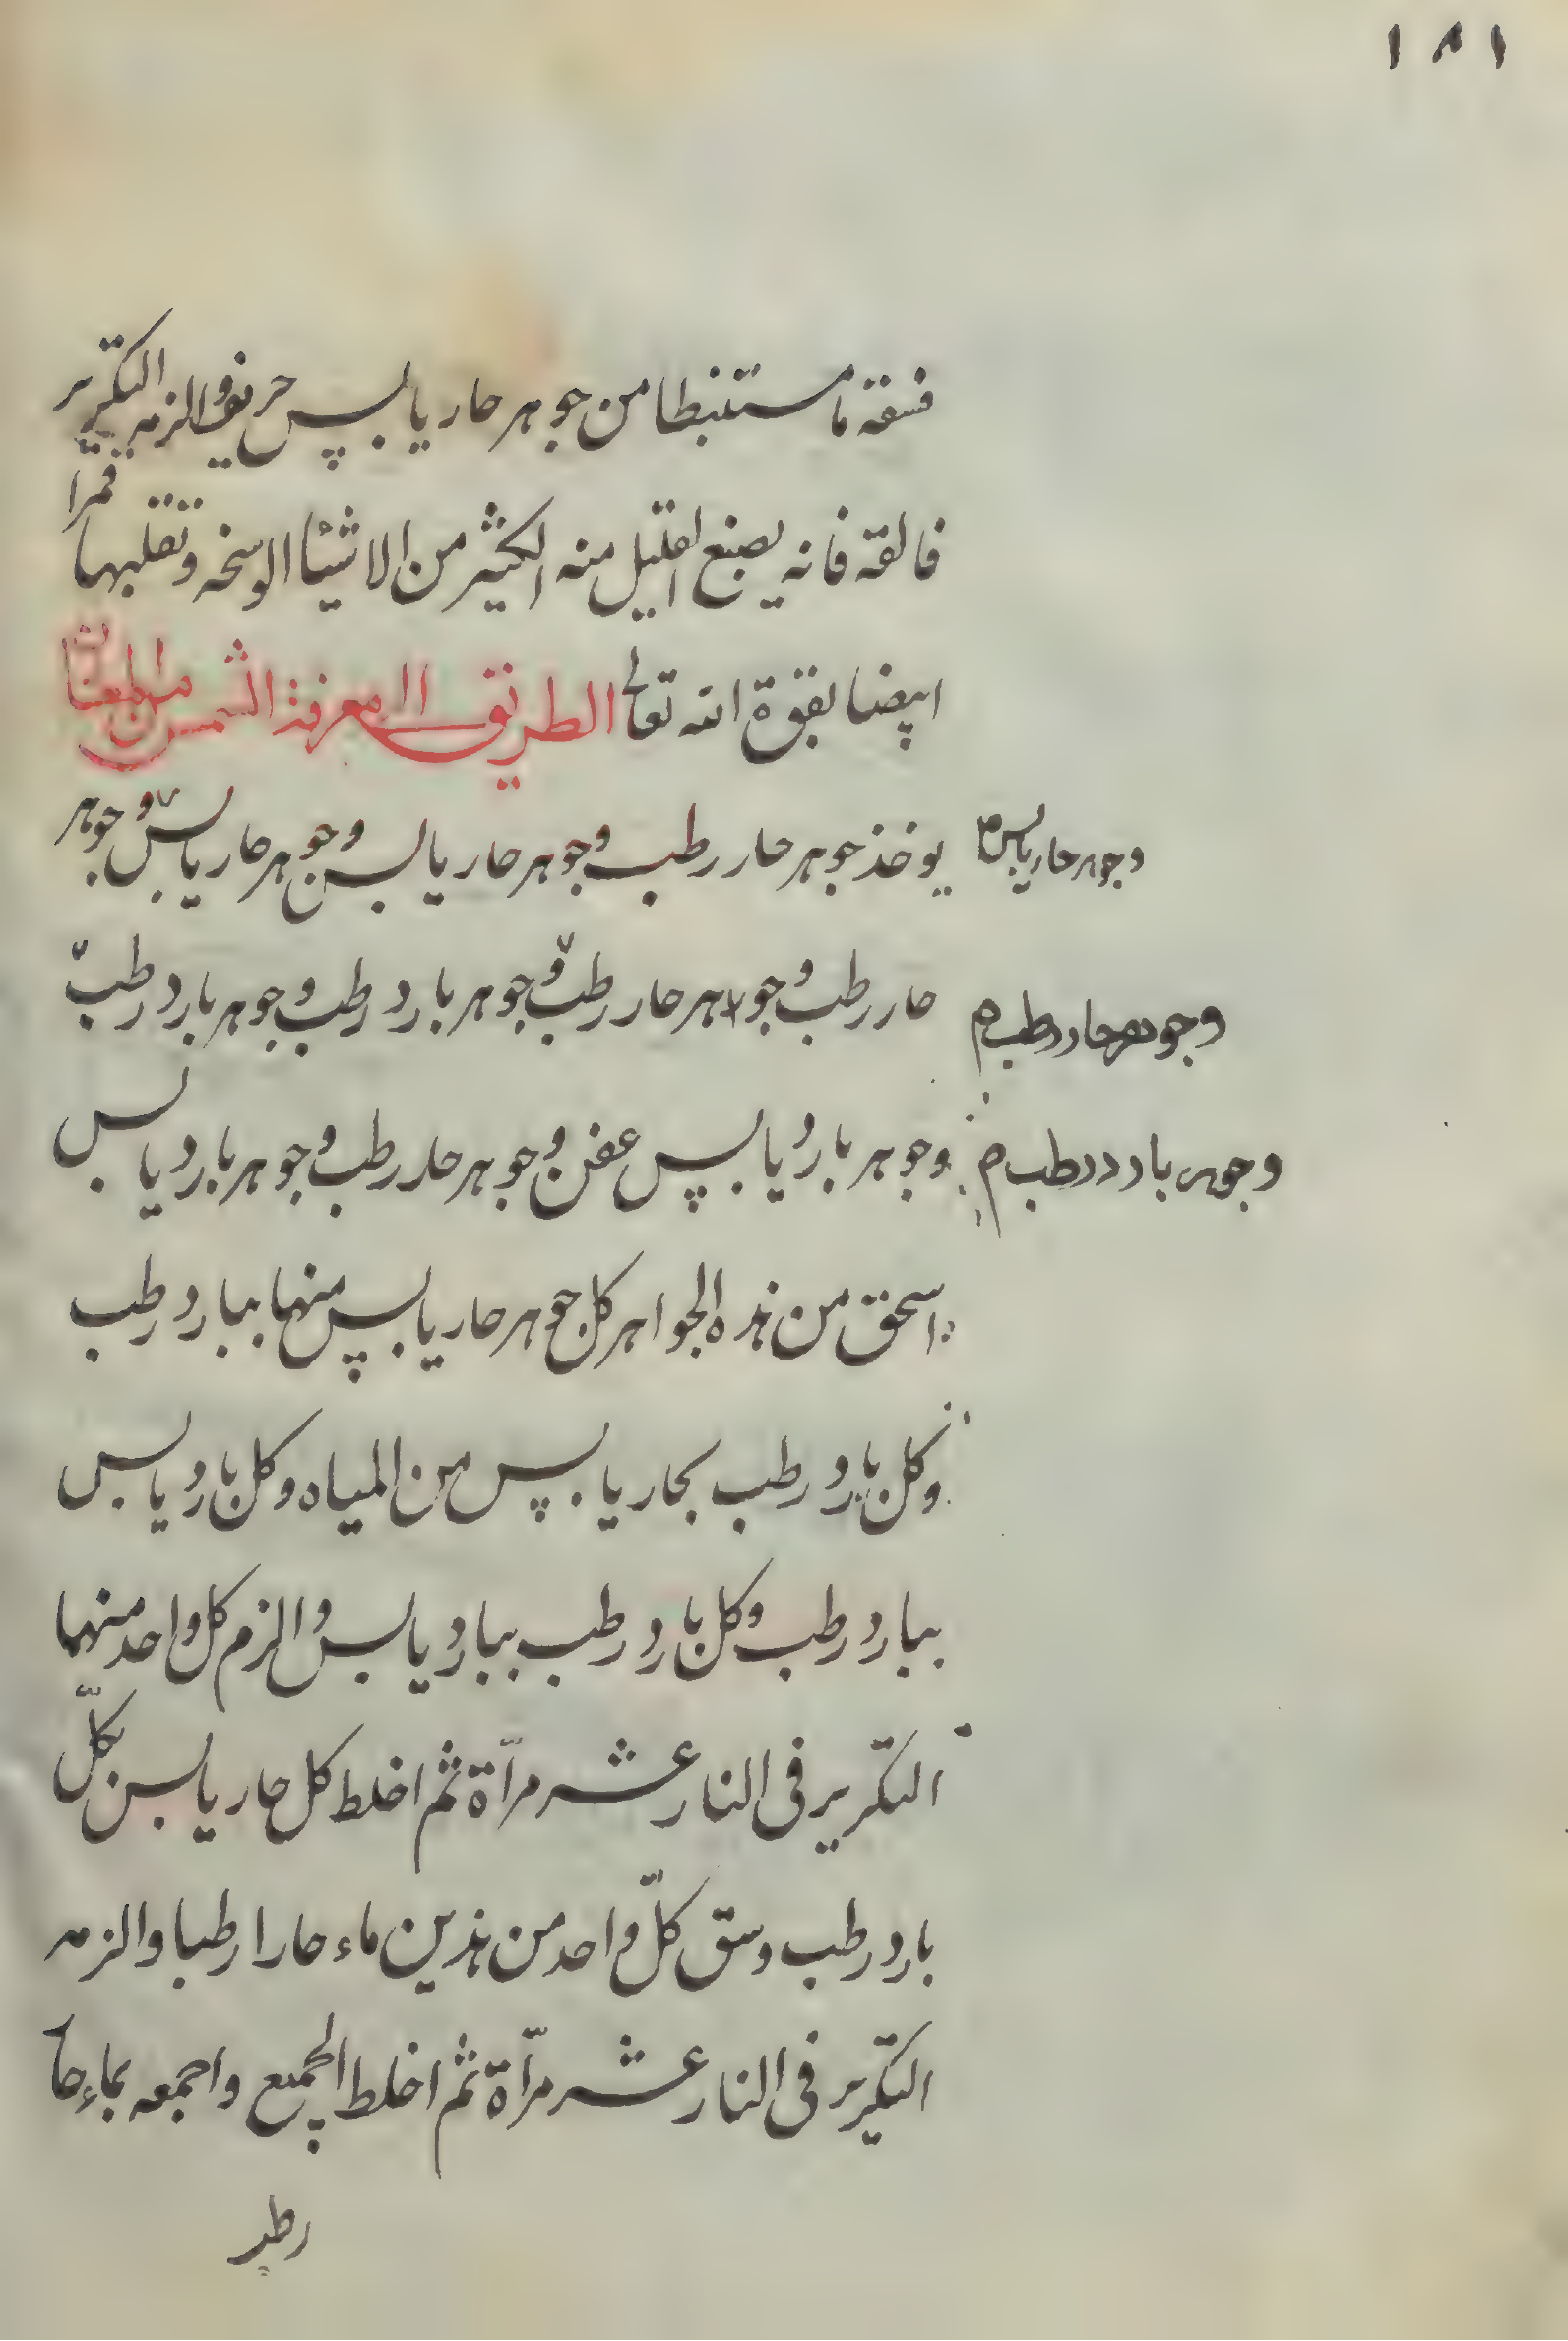 ١٨١
فسقه ماء مستنبطا من جوهر حار يابس حريف والزمه التكرير
فالقه فانه يصنع القليل منه الكثير من الاشيا الوسخه وتقلبها قمرا
ايضا بقوة الله تعالى الطريق الى معرفة الشمس
يوخذ جوهر حار رطب وجوهر حار يابس وجوهر حار يابس وجوهر
وجوهر حار يابس م
حار رطب وجوهر حار رطب وجوهر بارد رطب وجوهر بارد رطب
وجوهر حار رطب م
وجوهر بارد يابس عفن وجوهر حار رطب وجوهر بارد يابس
وجوهر بارد رطب م
اسحق من هذه الجواهر كل جوهر حار يابس منها ببارد رطب
وكل بارد رطب بحار يابس من المياه وكل بارد يابس
ببارد رطب وكل بارد رطب ببارد يابس والزم كل واحد منهما
التكرير فى النار عشر مرّاة ثم اخلط كل حار يابس بكلّ
بارد رطب وسق كلّ واحد من هذين ماء حارا رطبا والزمه
التكرير فى النار عشر مرّاة ثم اخلط الجميع واجمعه بماء حار
رطب